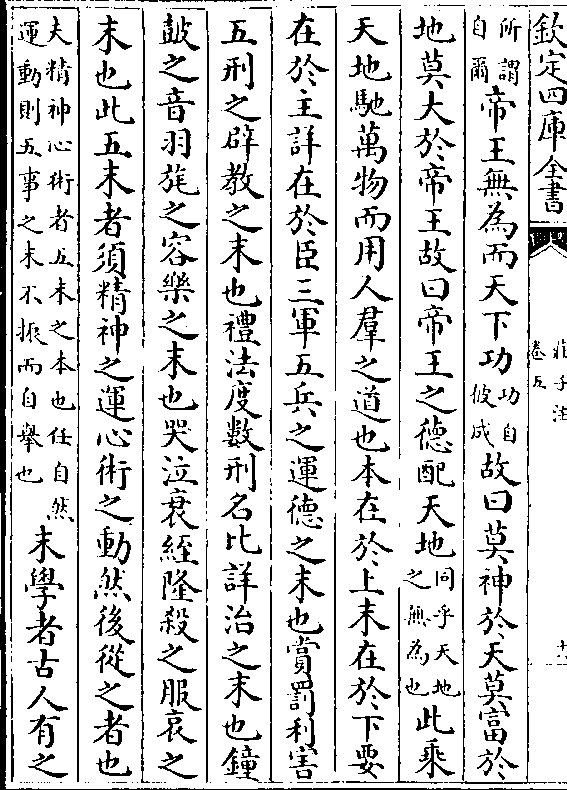 欽定四庫全書
莊子注
卷五
十一
所謂自爾帝王無為而天下功功自彼成故曰莫神於天莫富於
地莫大於帝王故曰帝王之徳配天地同乎天地之無為也此乘
天地馳萬物而用人羣之道也本在於上末在於下要
在於主詳在於臣三軍五兵之運徳之末也賞罰利害
五刑之辟教之末也禮法度數刑名比詳治之末也鐘
鼓之音羽旄之容樂之末也哭泣衰絰隆殺之服哀之
末也此五末者須精神之運心術之動然後從之者也
夫精神心術者五末之本也任自然運動則五事之末不振而自舉也末學者古人有之